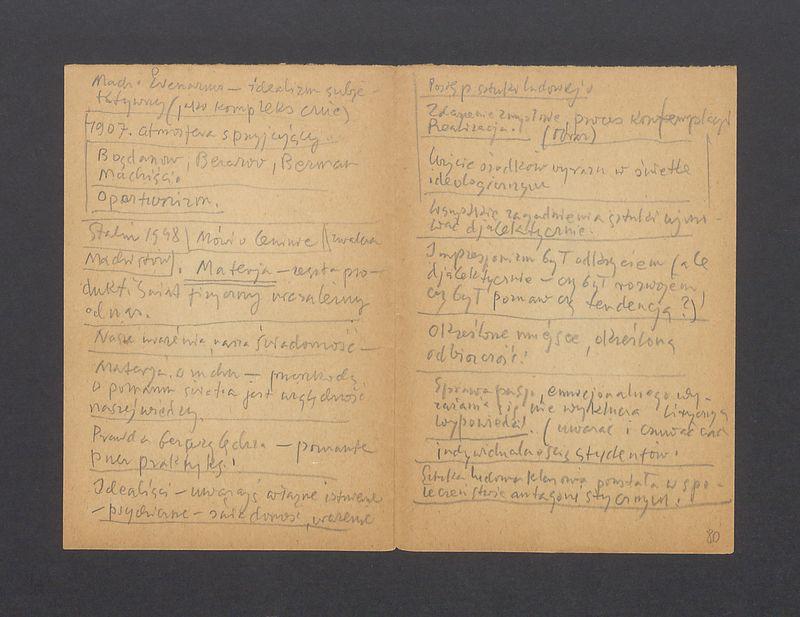 Mach i Avenarius – idealizm subje-
ktywny (jako kompleks
1907. atmosfera sprzyjający
Bogdanow, Bazarow, Berman
Machiści.
Oportunizm.
Stalin 1948 Mówi o Leninie zwalcza
Machistów. Materja – reszta pro-
dukt. Świat fizyczny niezależny
od nas.
Nasze wrażenia, nasza świadomość –
Materja, o ruchu – przeszkodą
o poznaniu świata jest względność
naszej wiedzy.
Prawda bezwzględna – poznanie
przez praktykę!
Idealiści – uważają istnienie
– psychiczne – świadomość, wrażenie
Postęp sztuki ludowej.
Zdarzenie zmysłowe, proces kontemplacji
Realizacja. (Obraz)
Użycie środków wyrazu w świetle
ideologicznym
Wszystkie zagadnienia sztuki
djalektycznie.
Impresjonizm był odbiciem (ale
djalektycznie – czy był rozwojem,
czy był poznawczą tendencją?)
Określone miejsce, określoną
odbiorczość!
Sprawa pasji, emocjonalnego wy-
rażania się nie wyklucza lirycznej
wypowiedzi. (uważać i czuwać nad
indywidualnością studentów.
Sztuka ludowa klasowa powstała w spo-
łeczeństwie antagonistycznym.
80